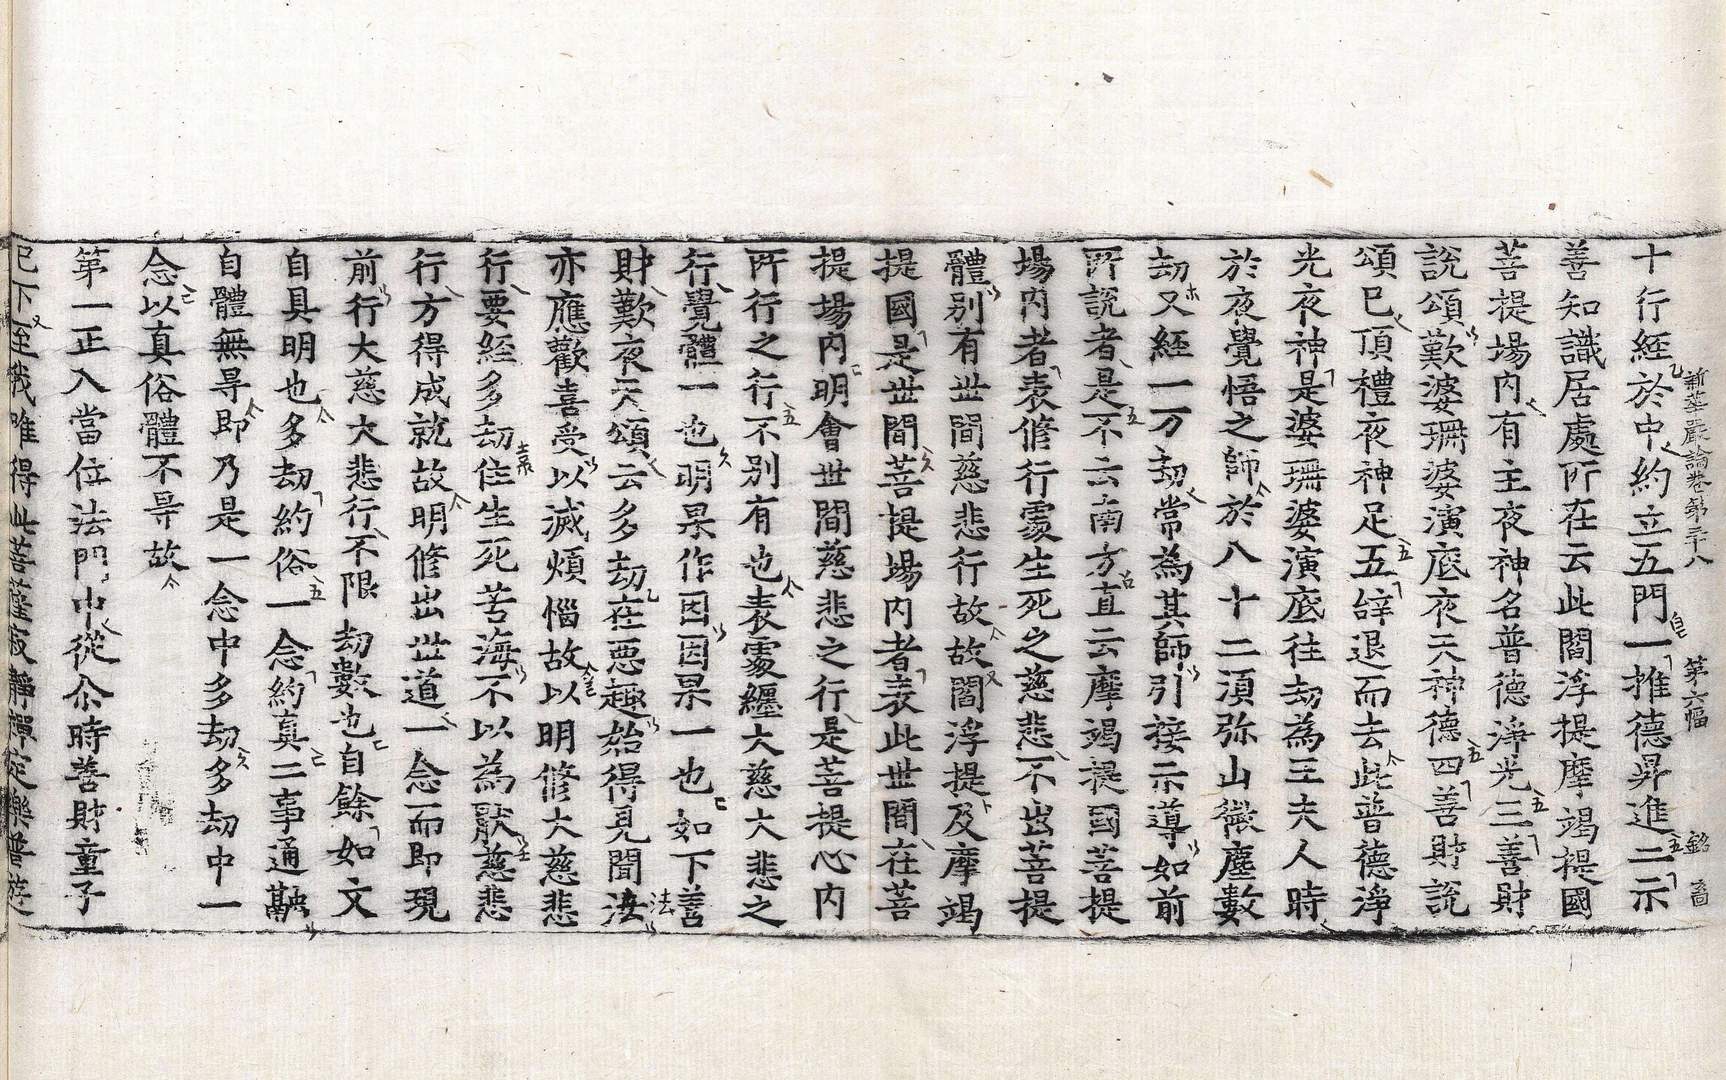 新華嚴論卷第三十八　第六幅　銘　嗇
十行經於中約立五門一推德昇進二示
善知識居處所在云此閻浮提摩竭提國
菩提場内有主夜神名普德淨光三善財
說頌歎婆珊婆演底夜天神德四善財說
頌已頂禮夜神足五辝退而去此普德淨
光夜神是婆珊婆演底往劫為王夫人時
於夜覺悟之師於八十二湏弥山微塵數
劫又經一万劫常為其師引接示導如前
所說者是不云南方直云摩竭提國菩提
場内者表修行處生死之慈悲不出菩提
體別有世間慈悲行故故閻浮提及摩竭
提國是世間菩提場内者表此世間在菩
提場内明會世間慈悲之行是菩提心内
所行之行不別有也表處纏大慈大悲之
行覺體一也明果作因因果一也如下善
財歎夜天頌云多劫在惡趣始得見聞法
亦應歡喜受以滅煩惱故以明修大慈悲
行要經多劫住生死苦海不以為猒慈悲
行方得成就故明修出世道一念而即現
前行大慈大悲行不限劫數也自餘如文
自具明也多劫約俗一念約真二事通融
自體無㝵即乃是一念中多劫多劫中一
念以真俗體不㝵故
第一正入當位法門中從尒時善財童子
已下至我唯得此菩薩寂靜禪定樂普遊